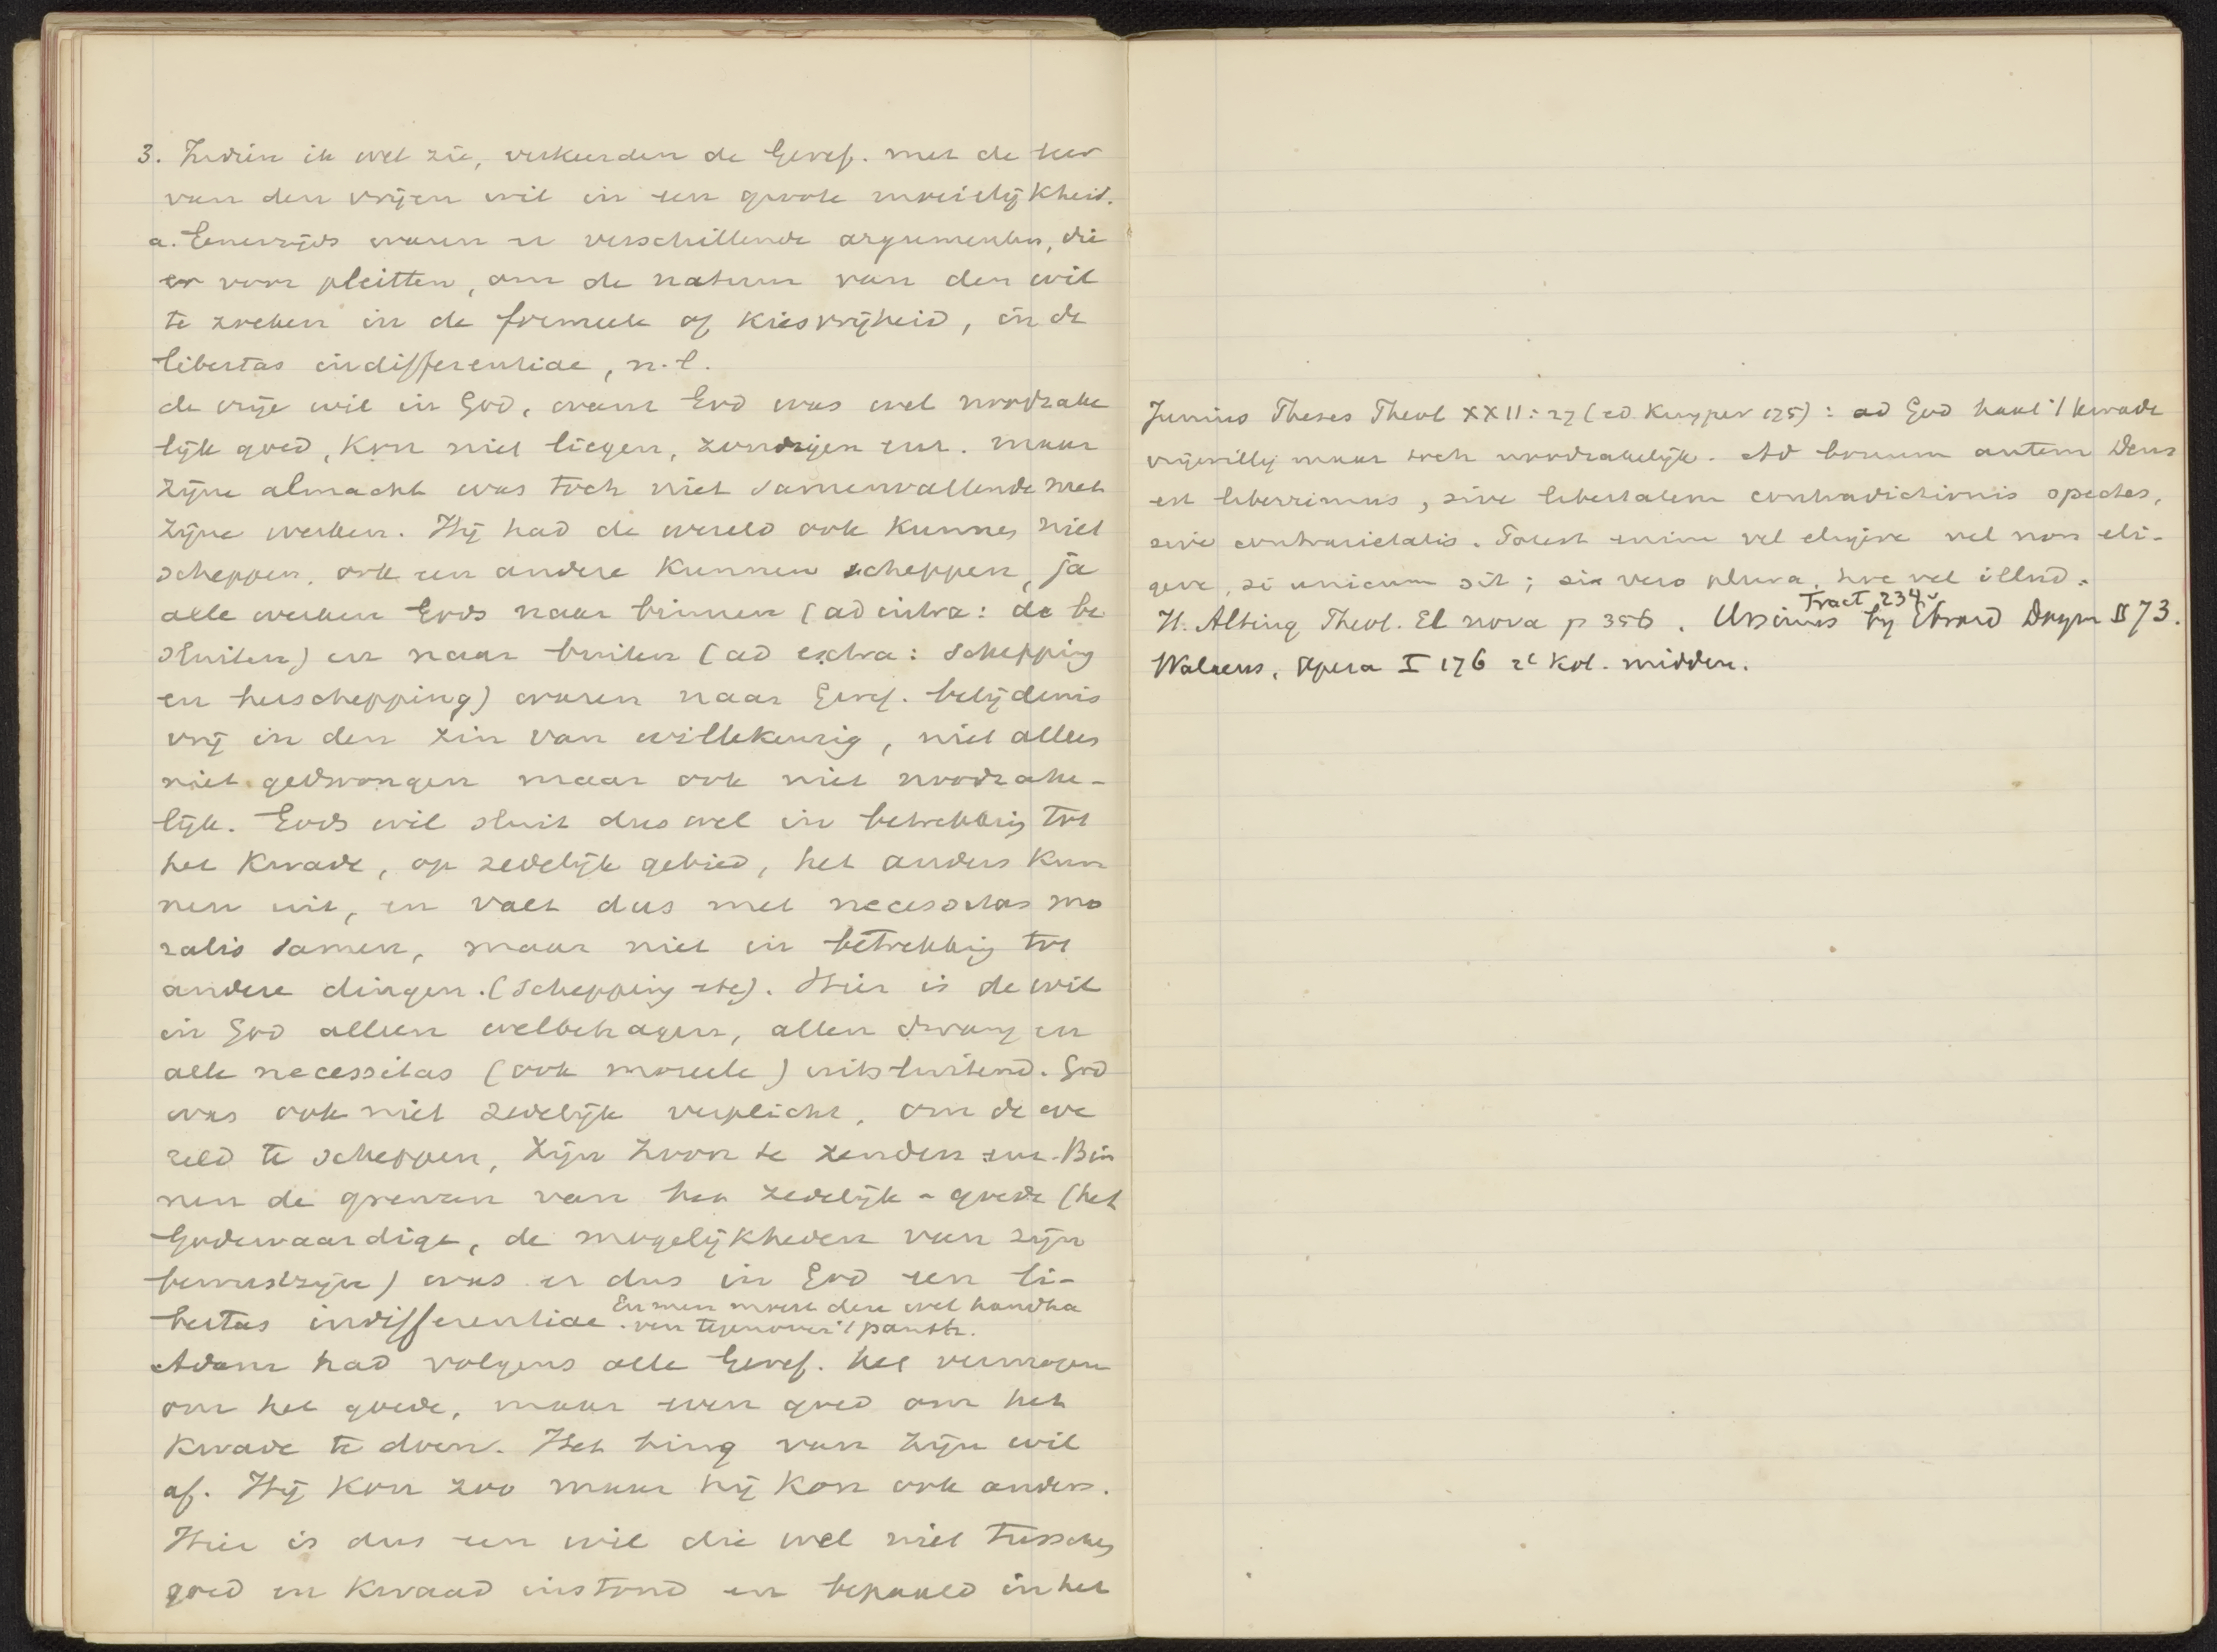 3. Indien ik wel zie, verkeerden de Geref. met de leer
van den vrijen wil in een groote moeielijkheid.
a. Eenerzijds waren er verschillende argumenten, die
er voor pleitten, om de natuur van den wil
te zoeken in de formeele of kiesvrijheid, in de
libertas indifferentiae, n.l.
de vrije wil in God, want God was wel noodzake
lijk goed, kon niet liegen, zondigen enz. maar
zijne almacht was toch niet samenvallende met
zijne werken. Hij had de wereld ook kunnen niet
scheppen, ook een andere kunnen scheppen, ja
alle werken Gods naar binnen (ad intra: de be
sluiten) en naar buiten (ad extra: schepping
en herschepping) waren naar Geref. belijdenis
vrij in den zin van willekeurig, niet alleen
niet gedwongen maar ook niet noodzake-
lijk. Gods wil sluit dus wel in betrekking tot
het kwade, op zedelijk gebied, het anders kun
nen uit, en valt dus met necessitas mo
ralis samen, maar niet in betrekking tot
andere dingen. (schepping etc). Hier is de wil
in God alleen welbehagen, allen dwang en
alle necessitas (ook moreele) uitsluitend. God
was ook niet zedelijk verplicht, om de we
reld te scheppen, zijn Zoon te zenden enz. Bin
nen de grenzen van het zedelijk-goede (het
Godewaardige, de mogelijkheden van zijn
bewustzijn) was er dus in God een li-
bertas indifferentiae. En men moest deze wel handha
ven tegenover 't panth.
Adam had volgens alle Geref. het vermogen
om het goede, maar even goed om het
kwade te doen. Het hing van zijn wil
af. Hij kon zoo maar hij kon ook anders.
Hier is dus een wil die wel niet tusschen
goed en kwaad instond en bepaald in het
Junius Theses Theol XXII: 27 (ed. Kuyper 175): ad God haat 't kwade
vrijwillig maar toch noodzakelijk. Ad bonum autem Deus
est liberrimus, sive libertatem contradictionis spectes,
sive contrarietatis. Potest enim vel eligere vel non eli-
gere, si unicum sit; sin vero plura, hoc vel illud.
H. Alting Theol. El nova p 356. Ursinus Tract 234 by Ebrard Dogm II 73.
Walaeus, Opera I 176 2e kol. midden.